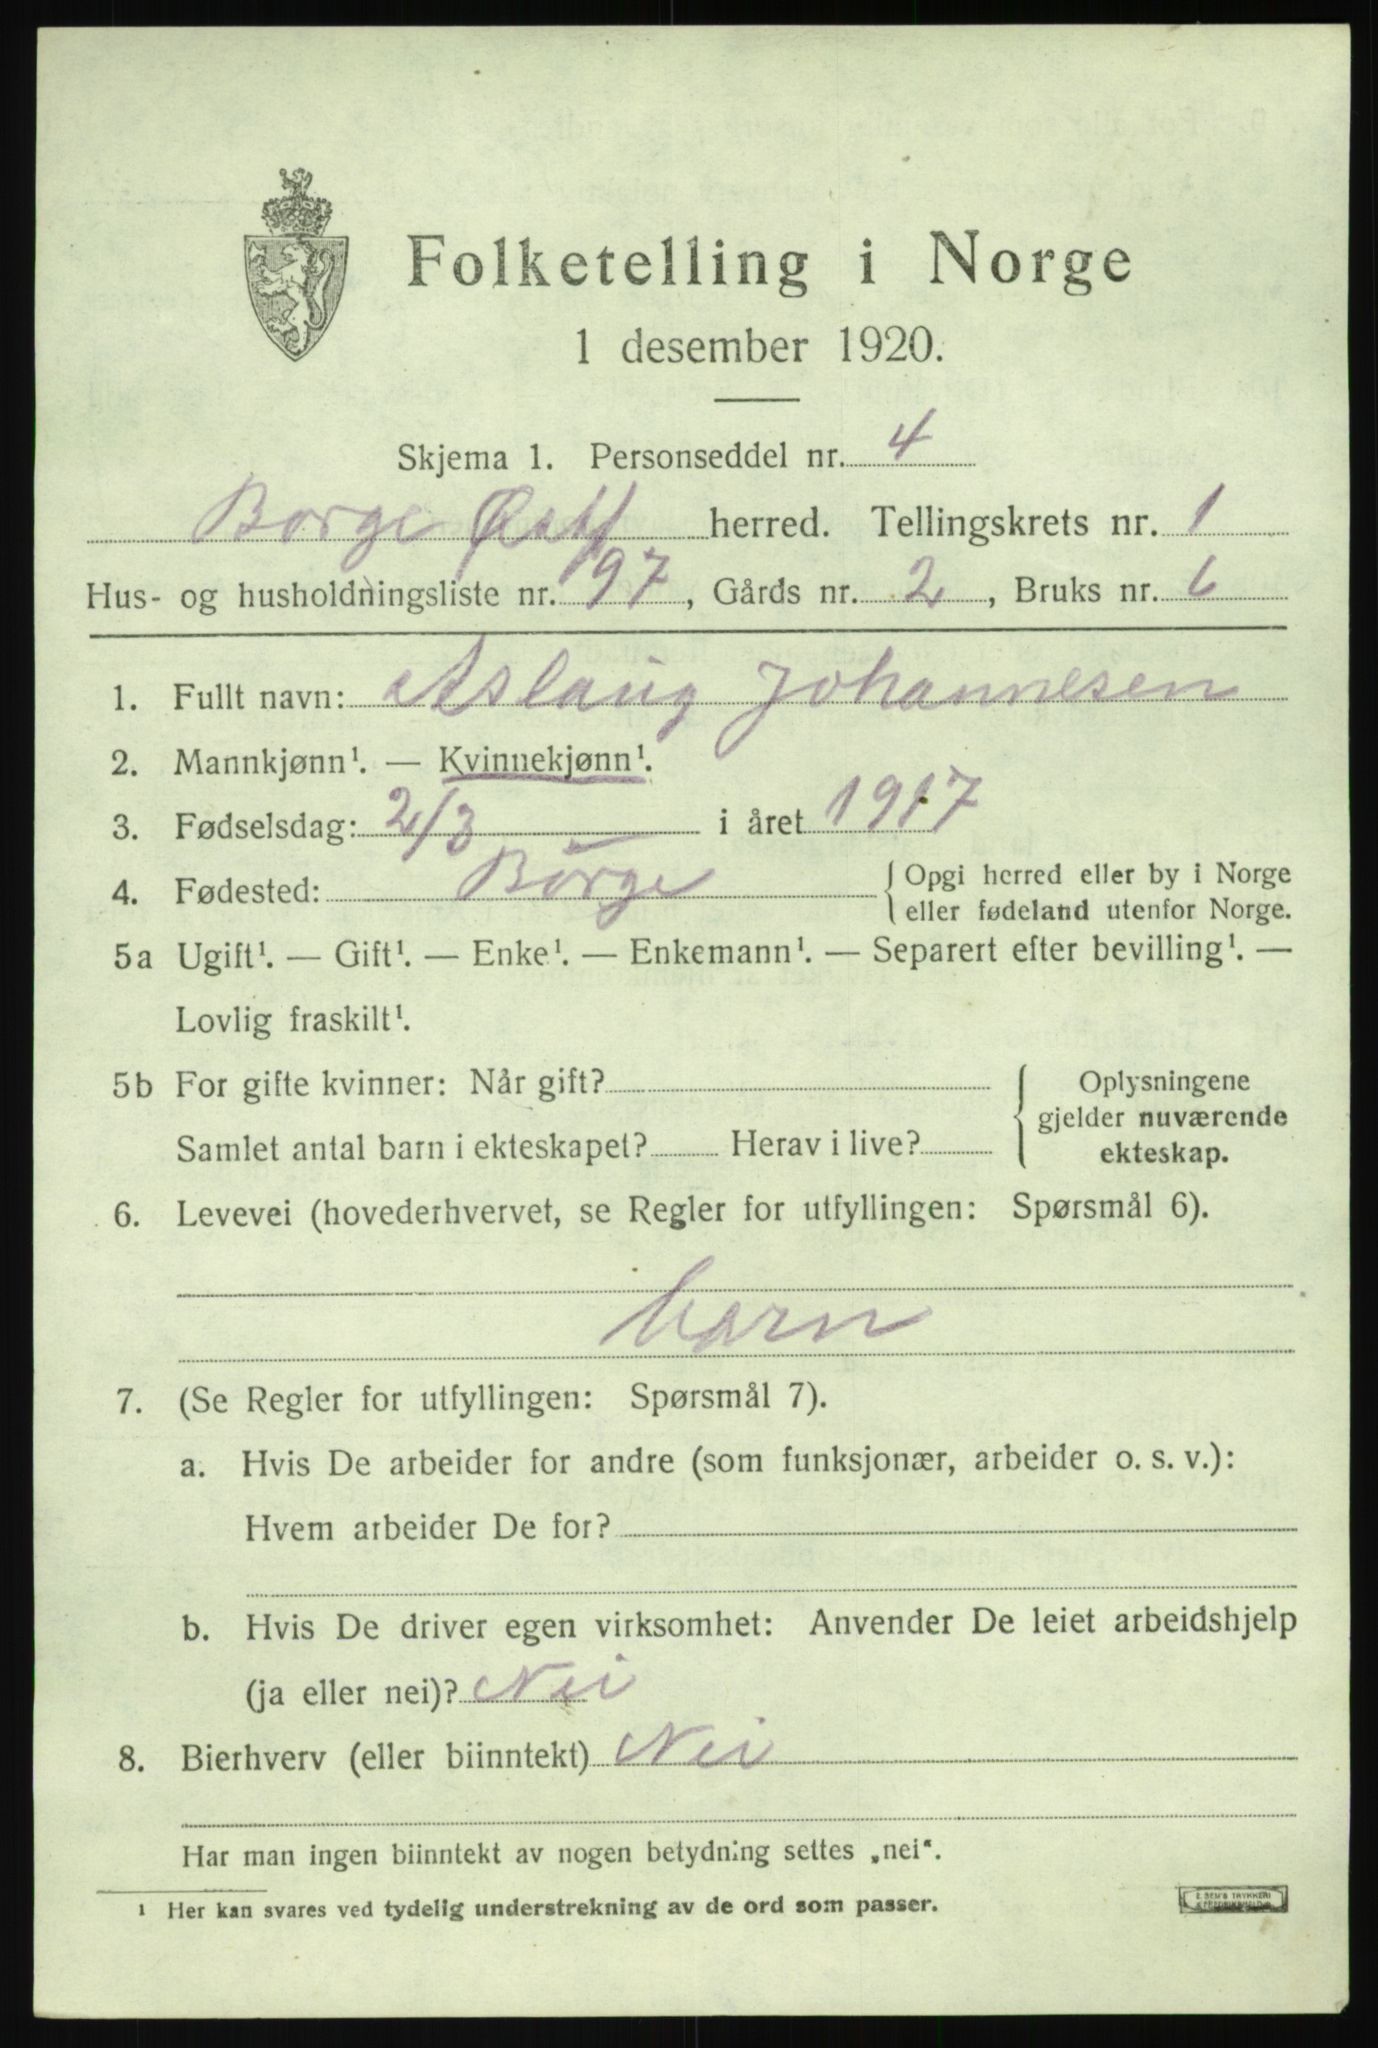 Folketelling i Norge
1 desember 1920.
Skjema 1. Personseddel nr. 4
Borge Østf herred. Tellingskrets nr. 1
Hus- og husholdningsliste nr. 97, Gårds nr. 2, Bruks nr. 6
1. Fullt navn: Aslaug Johannesen
2. Mannkjønn¹. — Kvinnekjønn¹.
3. Fødselsdag: 2/3 i året 1917
4. Fødested: Borge { Opgi herred eller by i Norge
eller fødeland utenfor Norge.
5a Ugift¹. — Gift¹. — Enke¹. — Enkemann¹. — Separert efter bevilling¹. —
Lovlig fraskilt¹.
5b For gifte kvinner: Når gift? { Oplysningene
gjelder nuværende
Samlet antal barn i ekteskapet? Herav i live? ekteskap.
6. Levevei (hovederhvervet, se Regler for utfyllingen: Spørsmål 6).
barn
7. (Se Regler for utfyllingen: Spørsmål 7).
a. Hvis De arbeider for andre (som funksjonær, arbeider o. s. v.):
Hvem arbeider De for?
b. Hvis De driver egen virksomhet: Anvender De leiet arbeidshjelp
(ja eller nei)? Nei
8. Bierhverv (eller biinntekt) Nei
Har man ingen biinntekt av nogen betydning settes „nei“.
¹ Her kan svares ved tydelig understrekning av de ord som passer.
E. SEM'S TRYKKERI
FREDRIKSHALD